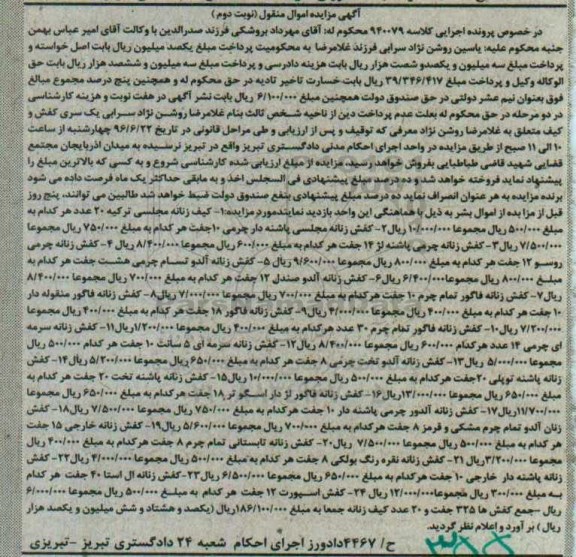 آگهی مزایده اموال منقول (نوبت دوم)
در خصوص پرونده اجرایی کلاسه ۹۴۰۰۷۹ محکوم له: آقای مهرداد بروشکی فرزند صدرالدین با وکالت آقای امیر عباس بهمن
جنبه محکوم علیه: یاسین روشن نژاد سرابی فرزند غلامرضا به محکومیت پرداخت مبلغ یکصد میلیون ریال بابت اصل خواسته و
پرداخت مبلغ سه میلیون و یکصدو شصت هزار ریال بابت هزینه دادرسی و پرداخت مبلغ سه میلیون و ششصد هزار ریال بابت حق
الوکاله وکیل و پرداخت مبلغ ۳۹/۳۴۶/۴۱۷ ریال بابت خسارت تاخیر تادیه در حق محکوم له و همچنین پنج درصد مجموع مبالغ
فوق بعنوان نیم عشر دولتی در حق صندوق دولت همچنین مبلغ ۶/۱۰۰/۰۰۰ ریال بابت نشر آگهی در هفت نوبت و هزینه کارشناسی
در دو مرحله در حق محکوم له بعلت عدم پرداخت دین از ناحیه شخص ثالث بنام غلامرضا روشن نژاد سرابی یک سری کفش و
کیف متعلق به غلامرضا روشن نژاد معرفی که توقیف و پس از ارزیابی و طی مراحل قانونی در تاریخ ۹۶/۶/۲۲ چهارشنبه از ساعت
۱۰ الی ۱۱ صبح از طریق مزایده در واحد اجرای احکام مدنی دادگستری تبریز واقع در تبریز نرسیده به میدان اذربایجان مجتمع
قضایی شهید قاضی طباطبایی بفروش خواهد رسید مزایده از مبلغ ارزیابی شده کارشناسی شروع و به کسی که بالاترین مبلغ را
پیشنهاد نماید فروخته خواهد شد و ده درصد مبلغ پیشنهادی فی المجلس اخذ و به مابقی حداکثر یک ماه فرصت داده می شود
برنده مزایده به هر عنوان انصراف نماید ده درصد مبلغ پیشنهادی بنفع صندوق دولت ضبط خواهد شد طالبین می توانند، پنج روز
قبل از مزایده از اموال بشر به ذیل با هماهنگی این واحد بازدید نمایندمورد مزایده:۱- کیف زنانه مجلسی ترکیه ۲۰ عدد هر کدام به
مبلغ ۵۰۰/۰۰۰ ریال مجموعا ۱۰/۰۰۰/۰۰۰ ریال۲- کفش زنانه مجلسی پاشنه دار چرمی ۱۰جفت هر کدام به مبلغ ۷۵۰/۰۰۰ ریال مجموعا
۷/۵۰۰/۰۰۰ ریال۳- کفش زنانه چرمی پاشنه لژ ۱۴ جفت هر کدام به مبلغ ۶۰۰/۰۰۰ ریال مجموعا ۸/۴۰۰/۰۰۰ ریال ۴- کفش زنانه چرمی
روسو ۱۲ جفت هر کدام به مبلغ ۸۰۰/۰۰۰ ریال مجموعا ۹/۶۰۰/۰۰۰ ریال ۵- کفش زنانه آلدو تمام چرمی هشت جفت هر کدام به
مبلغ ۸۰۰/۰۰۰ ریال مجموعا ۶/۴۰۰/۰۰۰ ریال۶- کفش زنانه آلدو صندل ۱۲ جفت هر کدام به مبلغ ۷۰۰/۰۰۰ ریال مجموعا ۸/۴۰۰/۰۰۰
ریال۷- کفش زنانه فاگور تمام چرم ۱۰ جفت هرکدام به مبلغ ۷۰۰/۰۰۰ ریال مجموعا ۷/۰۰۰/۰۰۰ ریال۸- کفش زنانه فاگور منقوله دار
۱۰ جفت هر کدام به مبلغ ۴۰۰/۰۰۰ ریال مجموعا ۴/۰۰۰/۰۰۰ ریال۹- کفش زنانه فاگور ۱۸ جفت هر کدام به مبلغ ۴۰۰/۰۰۰ ریال مجموعا
۷/۲۰۰/۰۰۰ ریال۱۰- کفش زنانه فاگور تمام چرم ۳۰ عدد هرکدام به مبلغ ۴۰۰/۰۰۰ ریال مجموعا ۱/۲۰۰/۰۰۰ریال۱۱- کفش زنانه سرمه
ای چرمی ۱۴ عدد هرکدام ۶۰۰/۰۰۰ ریال مجموعا ۸/۴۰۰/۰۰۰ ریال۱۲- کفش زنانه سرمه ای ۵ سانت ۱۰ جفت هر کدام ۵۰۰/۰۰۰ ریال
مجموعا ۵/۰۰۰/۰۰۰ ریال۱۳- کفش زنانه آلدو تخت چرمی ۸ جفت هر کدام به مبلغ ۶۵۰/۰۰۰ ریال مجموعا ۵/۲۰۰/۰۰۰ ریال۱۴- کفش
زنانه پاشنه توپلی ۲۰جفت هرکدام به مبلغ ۵۰۰/۰۰۰ ریال مجموعا ۱۰/۰۰۰/۰۰۰ ریال۱۵- کفش زنانه پاشنه تخت ۲۰ جفت هر کدام به
مبلغ ۶۵۰/۰۰۰ ریال مجموعا ۱۳/۰۰۰/۰۰۰ریال۱۶- کفش زنانه فاگور لژ دار اسگو تر ۱۸ جفت هر کدام به مبلغ ۶۵۰/۰۰۰ ریال مجموعا
۱۱/۷۰۰/۰۰۰ریال۱۷- کفش زنانه آلدور چرمی پاشنه دار ۱۰ جفت هرکدام به مبلغ ۷۵۰/۰۰۰ ریال مجموعا ۷/۵۰۰/۰۰۰ ریال۱۸- کفش
زنان آلدو تمام چرم مشکی و قرمز ۸ جفت هرکدام به مبلغ ۷۰۰/۰۰۰ ریال مجموعا ۵/۶۰۰/۰۰۰ ریال۱۹- کفش زنانه خارجی ۱۵ جفت
هر کدام به مبلغ ۵۰۰/۰۰۰ ریال مجموعا ۷/۵۰۰/۰۰۰ ریال۲۰- کفش زنانه تابستانی تمام چرم ۸ جفت هرکدام به مبلغ ۴۰۰/۰۰۰ ریال
مجموعا ۳/۲۰۰/۰۰۰ ریال ۲۱- کفش زنانه نقره رنگ بولکی ۸ جفت هر کدام به مبلغ ۵۰۰/۰۰۰ ریال مجموعا ۴/۰۰۰/۰۰۰ ریال۲۲- کفش
زنانه پاشنه دار خارجی ۱۰ جفت هرکدام به مبلغ ۶۵۰/۰۰۰ ریال مجموعا ۶/۵۰۰/۰۰۰ ریال۲۳-کفش زنانه ال استا ۴۰ جفت هر کدام
به مبلغ ۳۰۰/۰۰۰ ریال مجموعا۱۲/۰۰۰/۰۰۰ ریال ۲۴- کفش اسپورت ۱۲ جفت هر کدام به مبلغ ۵۰۰/۰۰۰ ریال مجموعا ۶/۰۰۰/۰۰۰
ریال –جمع کفش ها ۳۲۵ جفت و ۲۰ عدد کیف زنانه جمعا به مبلغ ۱۸۶/۱۰۰/۰۰۰ریال (یکصد و هشتاد و شش میلیون و یکصد هزار
ریال ) بر آورد و اعلام نظر گردید.
ح/ ۴۴۶۷دادورز اجرای احکام شعبه ۲۴ دادگستری تبریز -تبریزی